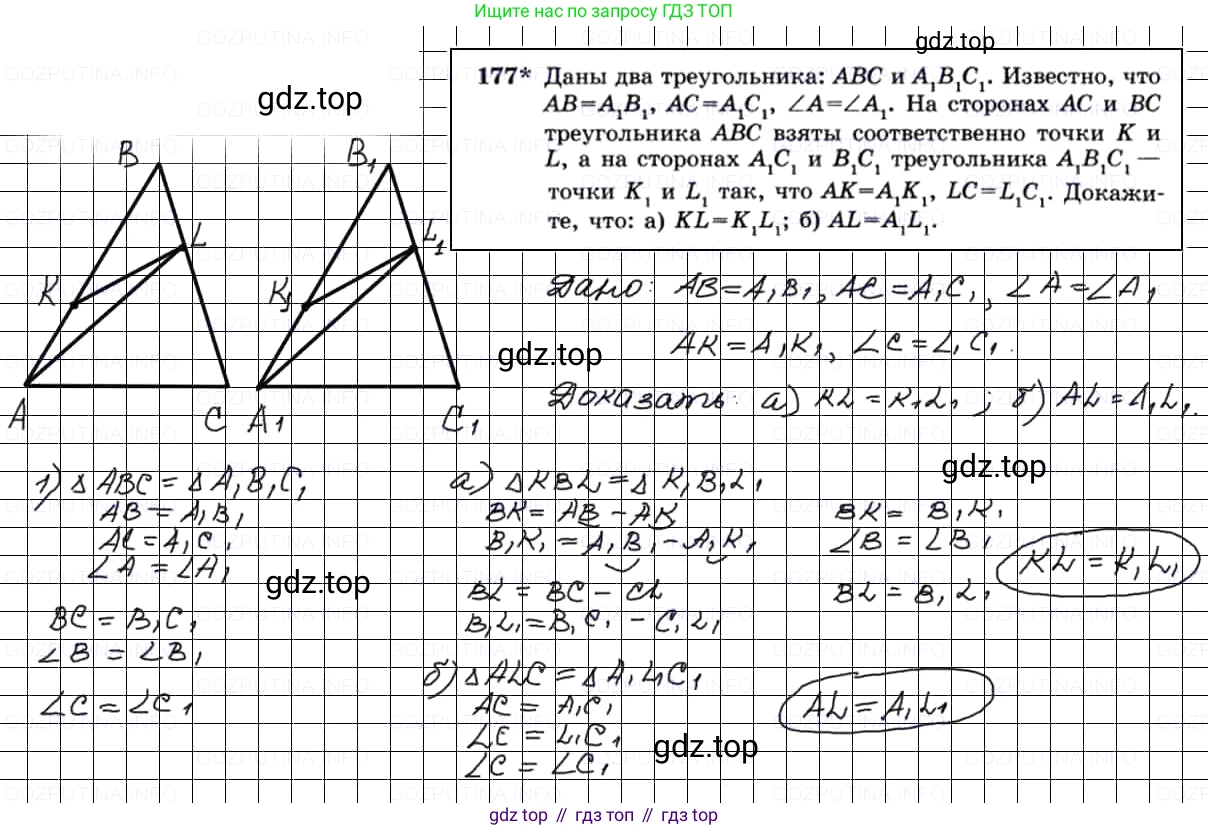 Ищите нас по запросу ГДЗ ТОП
gdz.top
177* Даны два треугольника: ABC и A₁B₁C₁. Известно, что
AB=A₁B₁, AC=A₁C₁, ∠A=∠A₁. На сторонах AC и BC
треугольника ABC взяты соответственно точки K и
L, а на сторонах A₁C₁ и B₁C₁ треугольника A₁B₁C₁ —
точки K₁ и L₁ так, что AK=A₁K₁, LC=L₁C₁. Докажи-
те, что: а) KL=K₁L₁; б) AL=A₁L₁.
gdz.top
B
B₁
L
L₁
K
K₁
A
C
A₁
C₁
Дано: AB=A₁B₁, AC=A₁C₁, ∠A=∠A₁
AK=A₁K₁, LC=L₁C₁.
gdz.top
Доказать: а) KL=K₁L₁; б) AL=A₁L₁.
gdz.top
1) △ABC=△A₁B₁C₁
AB=A₁B₁
AC=A₁C₁
∠A=∠A₁
gdz.top
BC=B₁C₁
∠B=∠B₁
∠C=∠C₁
а) △KBL=△K₁B₁L₁
BK=AB-AK
B₁K₁=A₁B₁-A₁K₁
BL=BC-CL
B₁L₁=B₁C₁-C₁L₁
BK=B₁K₁
∠B=∠B₁
BL=B₁L₁
KL=K₁L₁
б) △ALC=△A₁L₁C₁
AC=A₁C₁
LC=L₁C₁
∠C=∠C₁
AL=A₁L₁
gdz.top
gdz top // гдз топ // gdz top